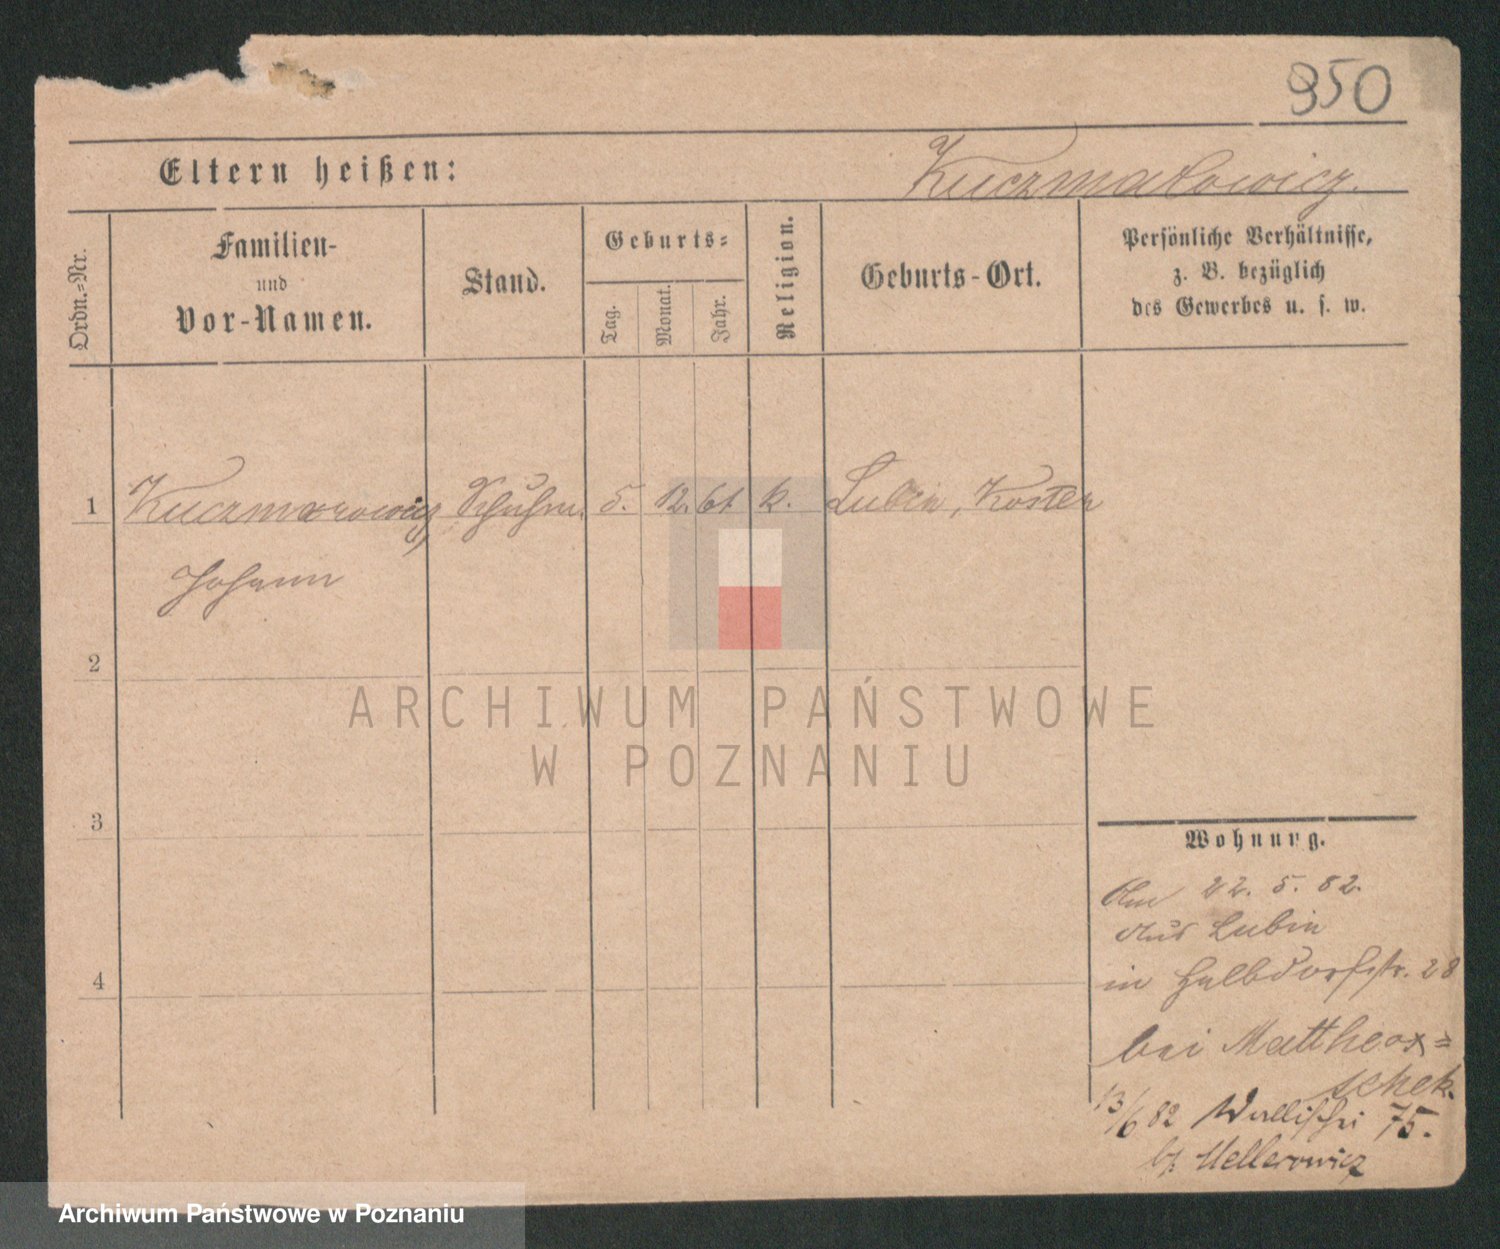 950
Eltern heißen:
Kuczmarowicz.
Ordn.-Nr.
Familien-
und
Vor-Namen.
Stand.
Geburts-
Tag.
Monat.
Jahr.
Religion.
Geburts-Ort.
Persönliche Verhältnisse,
z. B. bezüglich
des Gewerbes u. s. w.
1 Kuczmarowicz, Schuhm. 5. 12. 61. k. Lubin, Kosten
Johann
2
3
4
Wohnung.
Am 22. 5. 82.
aus Lubin
in Halbdorfstr. 28
bei Mattheas=
schek.
13/6 82 Wallischei 75.
bj. Mellerowicz
ARCHIWUM PAŃSTWOWE
W POZNANIU
Archiwum Państwowe w Poznaniu